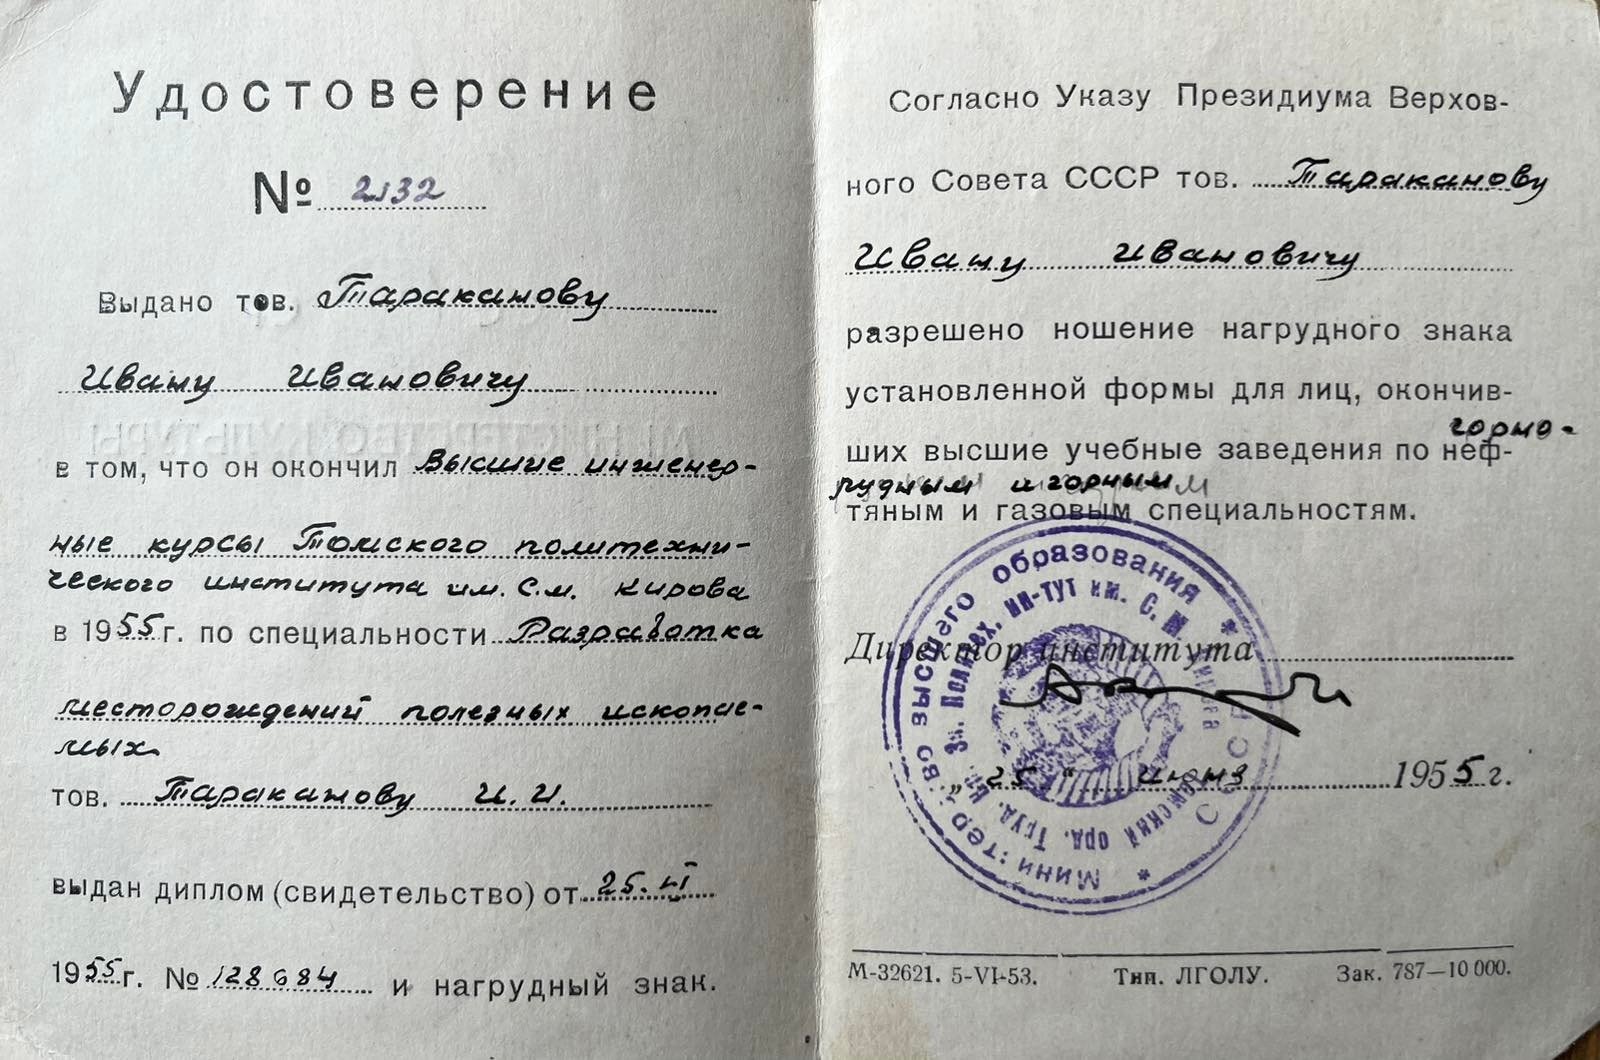 Удостоверение
№ 2132
Выдано тов. Тараканову
Ивану Ивановичу
в том, что он окончил Высшие инженер-
ные курсы Томского политехни-
ческого института им. С.М. Кирова
в 1955 г. по специальности Разработка
месторождений полезных ископае-
мых
тов. Тараканову И.И.
выдан диплом (свидетельство) от 25.VI
1955 г. № 128684 и нагрудный знак.
Согласно Указу Президиума Верхов-
ного Совета СССР тов. Тараканову
Ивану Ивановичу
разрешено ношение нагрудного знака
установленной формы для лиц, окончив-
горно-
ших высшие учебные заведения по неф-
рудным и горным
тяным и газовым специальностям.
Директор института
„25" июня 1955 г.
Министерство высшего образования * СССР *
Томский орд. Труд. Кр. Зн. Политех. ин-тут им. С. М. Кирова
М-32621. 5-VI-53. Тип. ЛГОЛУ. Зак. 787—10 000.